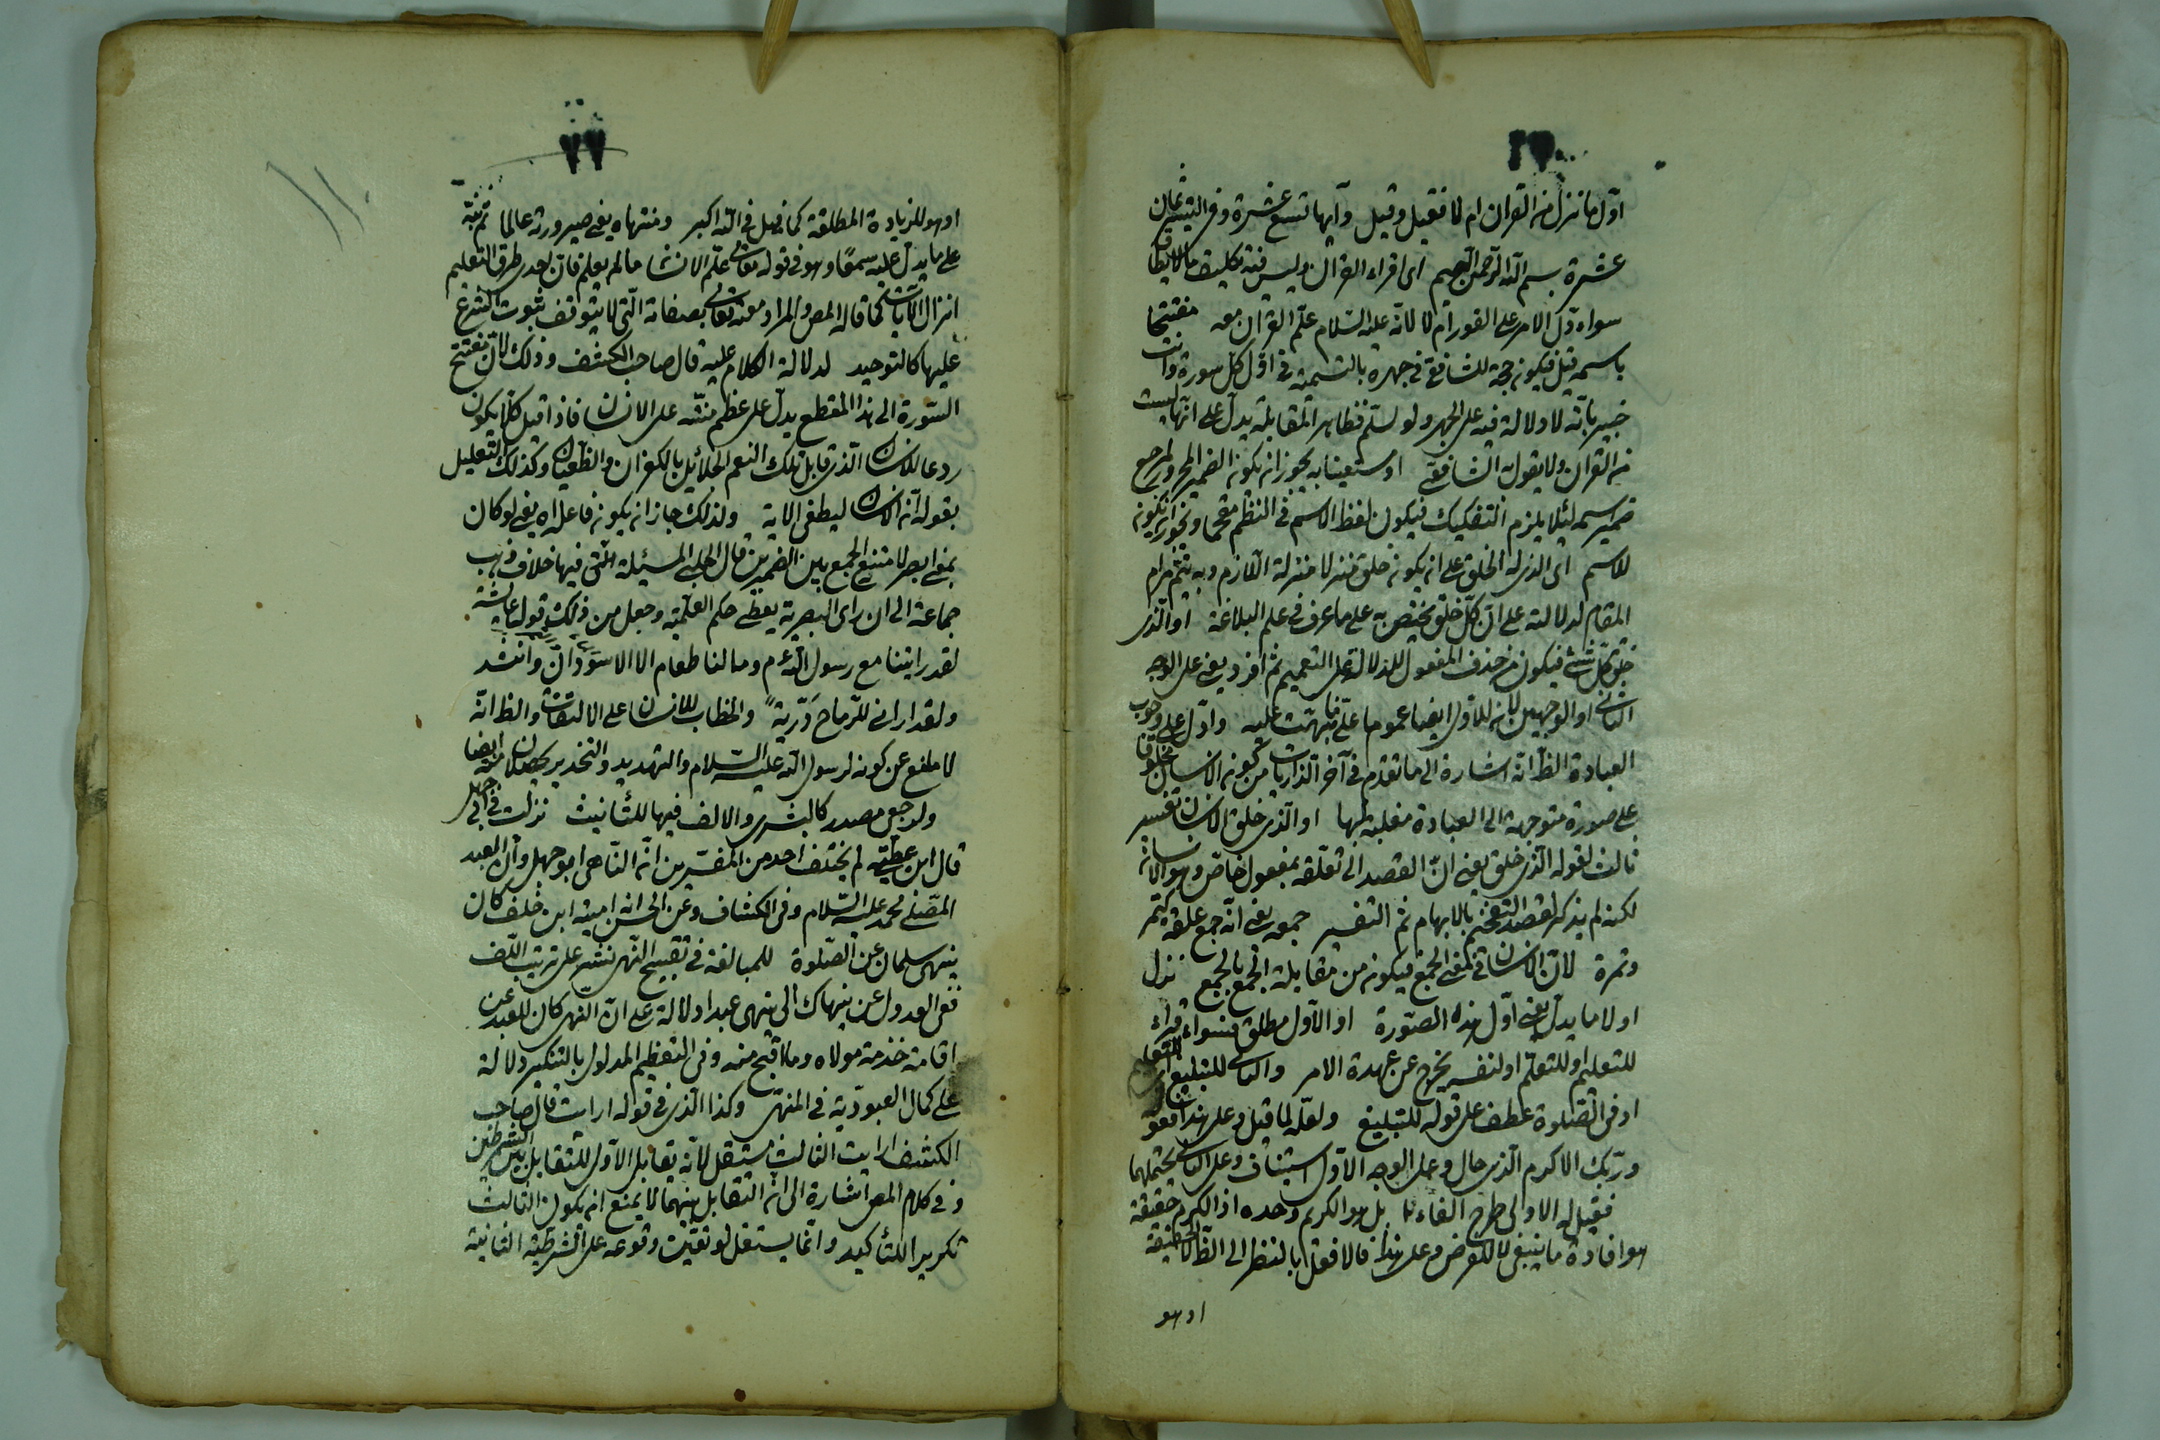 ٢٦
اول ما نزل من القران ام لا فقيل وقيل وآيها تسع عشرة وفى التيسير ثمان
عشرة بسم الله الرحمن الرحيم اى اقراء القران وليس فيه تكليف مالايطاق
سواء دل الامر على الفور ام لا لانه عليه السلام علم القران معه مفتتحا
باسمه قيل فيكون حجة للشافعى فى جهره بالتسمية فى اول كل سورة وانت
خبير بانه لا دلالة فيه على الجهر ولو سلم فظاهر المقابلة يدل على انها ليست
من القران ولا يقول به الشافعى او مستعينا به يجوز ان يكون الضمير المجرور لمرجع
ضمير اسمه لئلا يلزم التفكيك فيكون لفظ الاسم فى النظم مقحما ويجوز ان يكون
للاسم اى الذى له الخلق على ان يكون خلق منزلا منزلة اللازم وبه يتم مرام
المقام لدلالته على ان كل خلق مختص به على ما عرف فى علم البلاغة او الذى
خلق كل شئ فيكون من حذف المفعول للدلالة على التعميم ثم افرد يعنى على الوجه
الثانى او الوجهين لان للاول ايضا عموما على ما نبهت عليه وادل على وجوب
العبادة الظ انه اشارة الى ما تقدم فى آخر الذاريات من كون الانسان مخلوقا
على صورة متوجهة الى العبادة مغلبة لها او الذى خلق الانسان تفسير
ثالث لقوله الذى خلق يعنى ان القصد الى تعلقه بمفعول خاص وهو الانسان
لكنه لم يذكر لقصد التفخيم بالابهام ثم التفسير جمعه يعنى انه جمع علقة كتمر
وتمرة لان الانسان فى معنى الجمع فيكون من مقابلة الجمع بالجمع نزل
اولا ما يدل يعنى اول هذه السورة او الاول مطلق فسواء قراء
للتعليم او للتعلم او لنفسه يخرج عن عهدة الامر والثانى للتبليغ
او فى الصلوة عطف على قوله للتبليغ ولعله لما قيل وعلى هذا فقوله
وربك الاكرم الذى حال وعلى الوجه الاول استيناف وعلى الثانى يحتملهما
فقيل له الاولى طرح الفاء بل هو الكريم وحده اذ الكرم حقيقة
هو افادة ما ينبغى لا لعوض وعلى هذا فالافعل بالنظر الى الظ لا الحقيقة
او هو
٢٧
او هو للزيادة المطلقة كما قيل فى الله اكبر ومنتهاه يعنى صيرورته عالما ثم نبه
على ما يدل عليه سمعا وهو فى قوله تعالى علم الانسان ما لم يعلم فان احد طرق التعليم
انزال الآيات كما قاله المص والمراد معرفته تعالى بصفاته التى لا يتوقف ثبوت الشرع
عليها كالتوحيد لدلالة الكلام عليه قال صاحب الكشف وذلك لان مفتتح
السورة الى هذا المقطع يدل على عظم منته على الانسان فاذا قيل كلا يكون
ردعا للانسان الذى قابل تلك النعم الجلائل بالكفران والطغيان وكذلك التعليل
بقوله ان الانسان ليطغى الاية ولذلك جاز ان يكون فاعله اه يعنى لو كان
بمعنى ابصر لامتنع الجمع بين الضميرين قال الحلبى المسئلة التى فيها خلاف ذهب
جماعة الى ان راى البصرية يعطى حكم العلمية وجعل من ذلك قول عايشة
لقد رايتنا مع رسول الله عم وما لنا طعام الا الاسودان وانشد
ولقد ارانى للرماح دريئة والخطاب للانسان على الالتفات والظ انه
لا مانع عن كونه لرسول الله عليه السلام والتهديد والتحذير يحصلان منه ايضا
والرجعى مصدر كالبشرى والالف فيها للتأنيث نزلت فى ابى جهل
قال ابن عطية لم يختلف احد من المفسرين ان الناهى ابو جهل وان العبد
المصلى محمد عليه السلام وفى الكشاف وعن الحسن انه امية ابن خلف كان
ينهى سلمان عن الصلوة للمبالغة فى تقبيح النهى نشر على ترتيب اللف
ففى العدول عن ينهاك الى ينهى عبدا دلالة على ان النهى كان للعبد عن
اقامة خدمة مولاه وما اقبح منه وفى التعظيم المدلول بالتنكير دلالة
على كمال العبودية فى المنهى وكذا الذى فى قوله ارايت قال صاحب
الكشف ارايت الثالث مستقل لانه تقابل الاول للتقابل بين الشرطين
وفى كلام المص اشارة الى ان التقابل بينهما لا يمنع ان يكون الثالث
تكريرا للتأكيد وانما يستقل لو تعين وقوعه على الشرطية الثانية